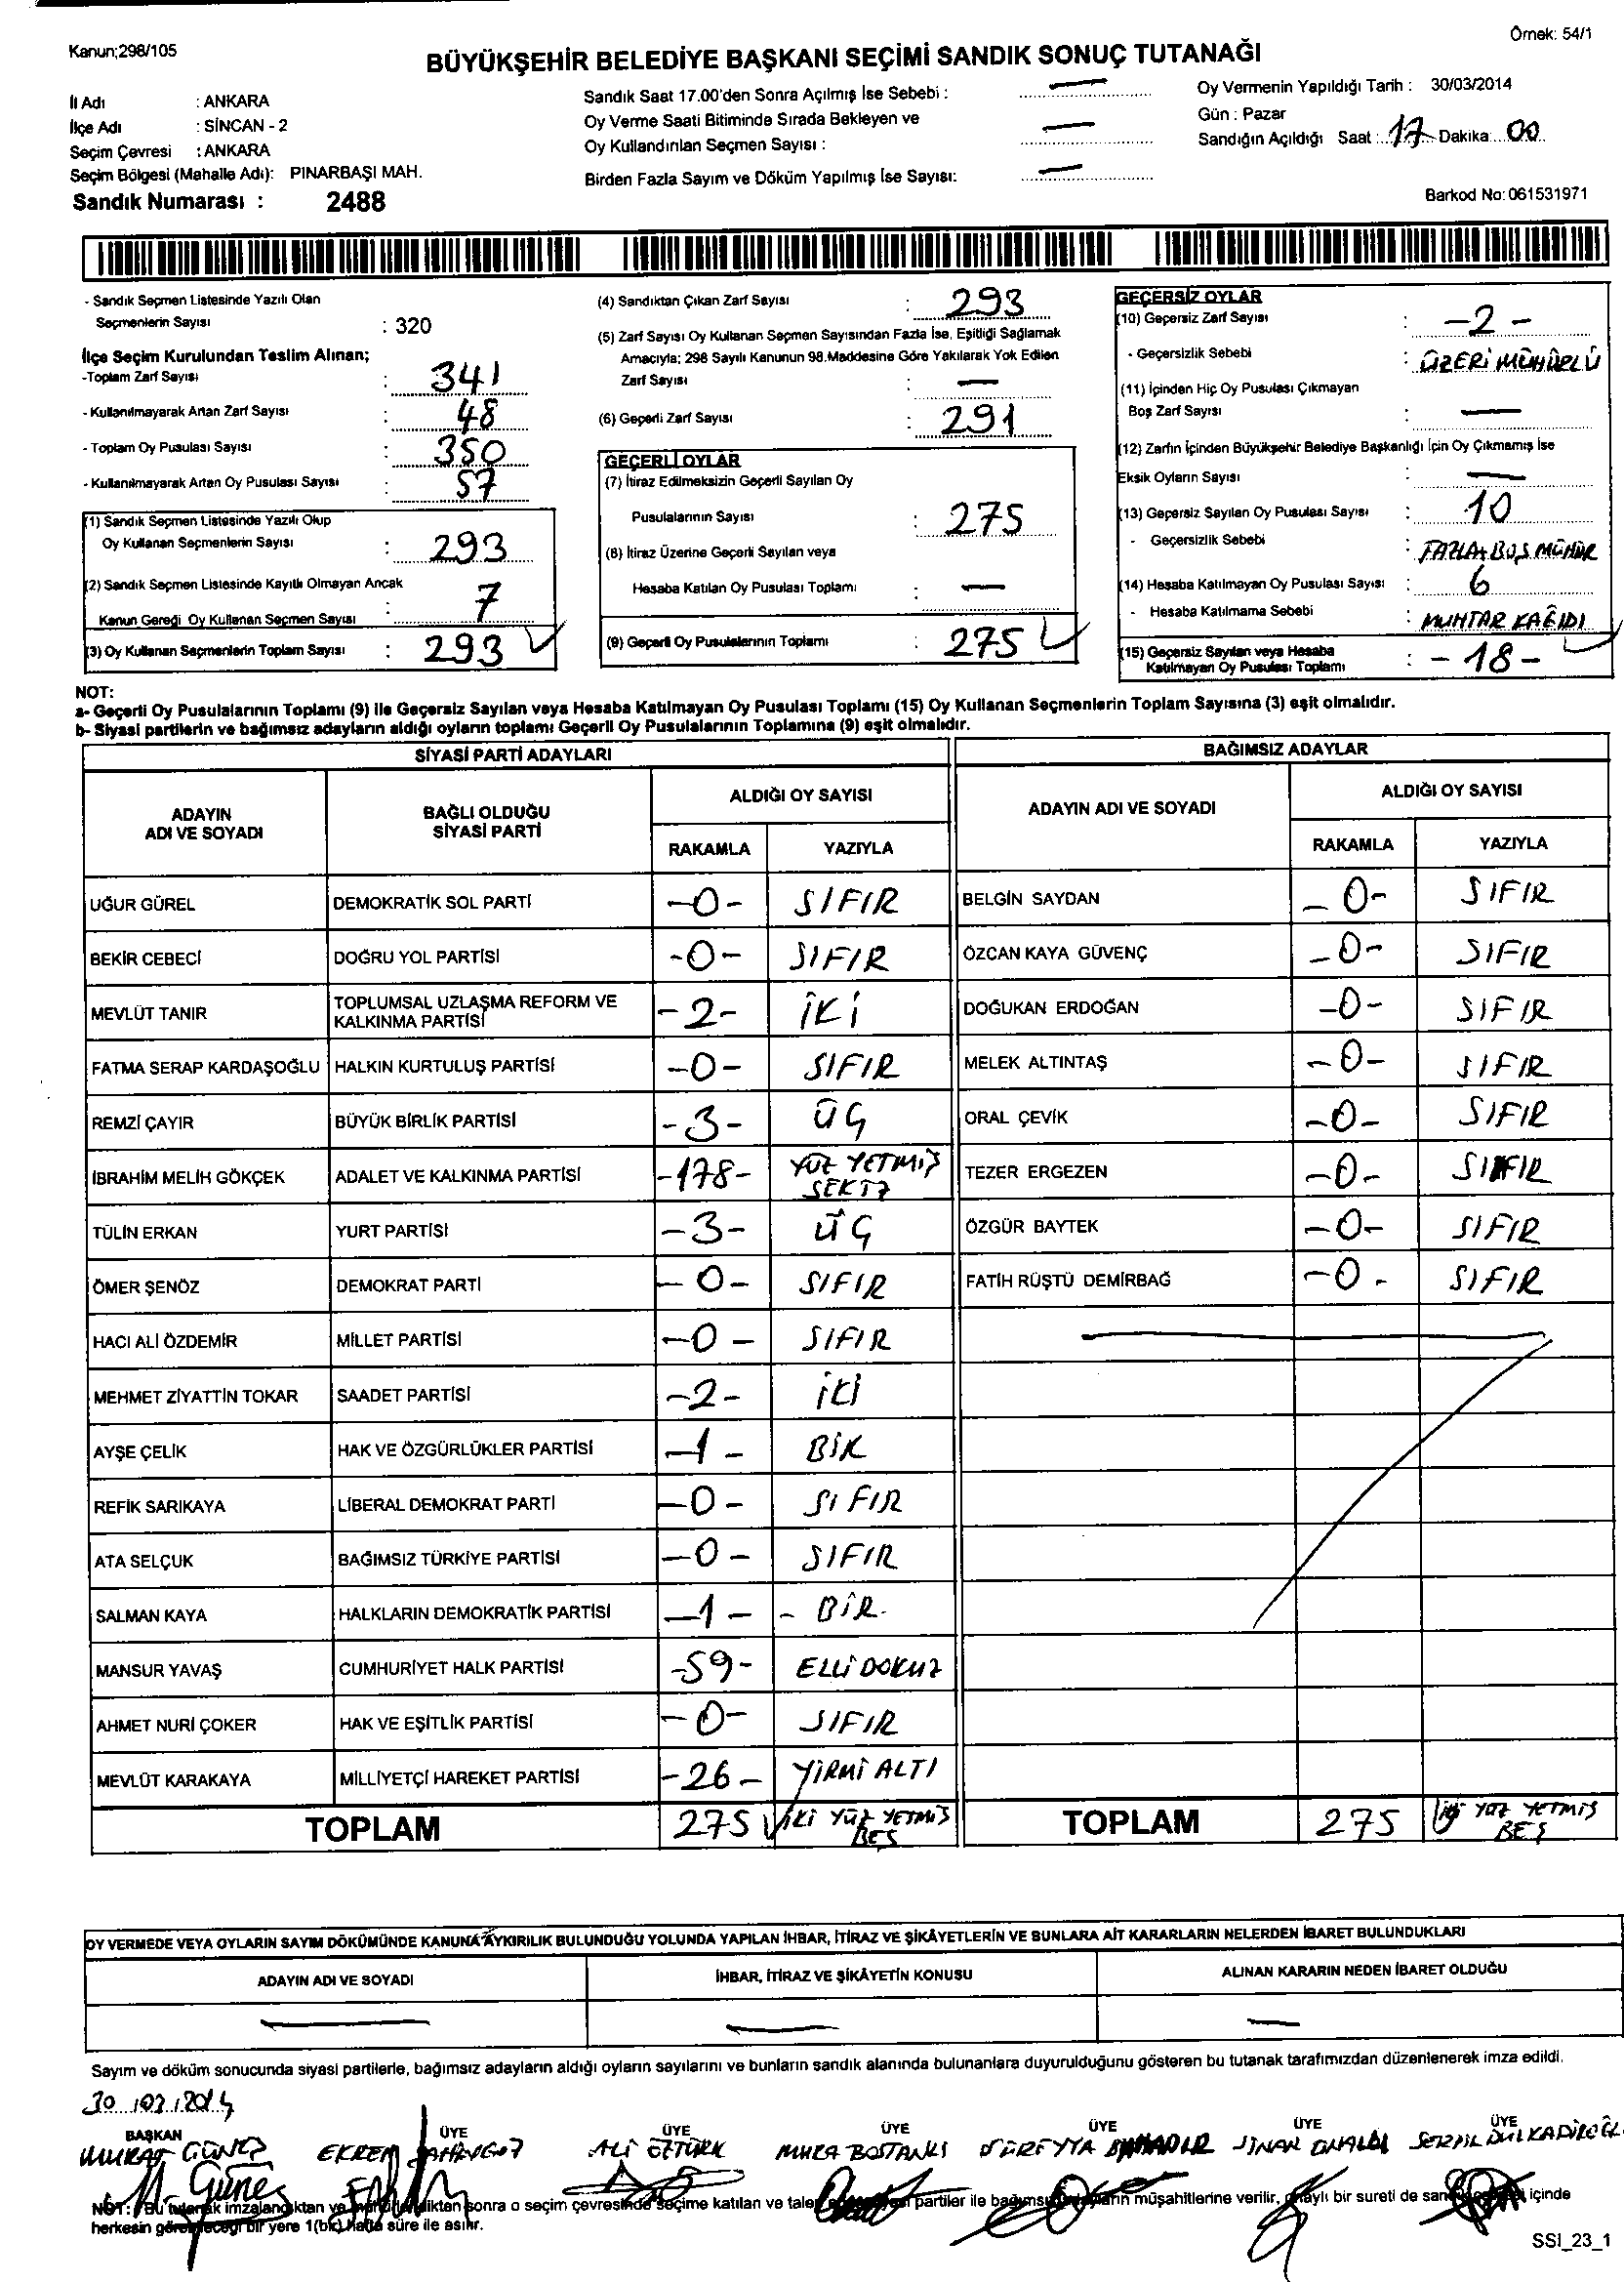 Kanun;298/105
Örnek: 54/1
BÜYÜKŞEHİR BELEDİYE BAŞKANI SEÇİMİ SANDIK SONUÇ TUTANAĞI
İl Adı : ANKARA
İlçe Adı : SİNCAN - 2
Seçim Çevresi : ANKARA
Seçim Bölgesi (Mahalle Adı): PINARBAŞI MAH.
Sandık Numarası : 2488
Sandık Saat 17.00'den Sonra Açılmış İse Sebebi :
Oy Verme Saati Bitiminde Sırada Bekleyen ve
Oy Kullandırılan Seçmen Sayısı :
Birden Fazla Sayım ve Döküm Yapılmış İse Sayısı:
Oy Vermenin Yapıldığı Tarih : 30/03/2014
Gün : Pazar
Sandığın Açıldığı Saat : 17 Dakika: 00
Barkod No: 061531971
- Sandık Seçmen Listesinde Yazılı Olan
Seçmenlerin Sayısı : 320
İlçe Seçim Kurulundan Teslim Alınan;
-Toplam Zarf Sayısı : 341
- Kullanılmayarak Artan Zarf Sayısı : 48
- Toplam Oy Pusulası Sayısı : 350
- Kullanılmayarak Artan Oy Pusulası Sayısı : 57
(1) Sandık Seçmen Listesinde Yazılı Olup
Oy Kullanan Seçmenlerin Sayısı : 293
(2) Sandık Seçmen Listesinde Kayıtlı Olmayan Ancak
Kanun Gereği Oy Kullanan Seçmen Sayısı : 7
(3) Oy Kullanan Seçmenlerin Toplam Sayısı : 293
(4) Sandıktan Çıkan Zarf Sayısı : 293
(5) Zarf Sayısı Oy Kullanan Seçmen Sayısından Fazla İse, Eşitliği Sağlamak
Amacıyla; 298 Sayılı Kanunun 98.Maddesine Göre Yakılarak Yok Edilen
Zarf Sayısı : —
(6) Geçerli Zarf Sayısı : 291
GEÇERLİ OYLAR
(7) İtiraz Edilmeksizin Geçerli Sayılan Oy
Pusulalarının Sayısı : 275
(8) İtiraz Üzerine Geçerli Sayılan veya
Hesaba Katılan Oy Pusulası Toplamı : —
(9) Geçerli Oy Pusulalarının Toplamı : 275
GEÇERSİZ OYLAR
(10) Geçersiz Zarf Sayısı : -2-
- Geçersizlik Sebebi : ÜZERİ MÜHÜRLÜ
(11) İçinden Hiç Oy Pusulası Çıkmayan
Boş Zarf Sayısı : —
(12) Zarfın İçinden Büyükşehir Belediye Başkanlığı İçin Oy Çıkmamış İse
Eksik Oyların Sayısı : —
(13) Geçersiz Sayılan Oy Pusulası Sayısı : 10
- Geçersizlik Sebebi : FAZLA+BOŞ MÜHÜR
(14) Hesaba Katılmayan Oy Pusulası Sayısı : 6
- Hesaba Katılmama Sebebi : MUHTAR KAĞIDI
(15) Geçersiz Sayılan veya Hesaba
Katılmayan Oy Pusulası Toplamı : -18-
NOT:
a- Geçerli Oy Pusulalarının Toplamı (9) ile Geçersiz Sayılan veya Hesaba Katılmayan Oy Pusulası Toplamı (15) Oy Kullanan Seçmenlerin Toplam Sayısına (3) eşit olmalıdır.
b- Siyasi partilerin ve bağımsız adayların aldığı oyların toplamı Geçerli Oy Pusulalarının Toplamına (9) eşit olmalıdır.
SİYASİ PARTİ ADAYLARI
ADAYIN ADI VE SOYADI BAĞLI OLDUĞU SİYASİ PARTİ ALDIĞI OY SAYISI
RAKAMLA YAZIYLA
UĞUR GÜREL DEMOKRATİK SOL PARTİ -0- SIFIR
BEKİR CEBECİ DOĞRU YOL PARTİSİ -0- SIFIR
MEVLÜT TANIR TOPLUMSAL UZLAŞMA REFORM VE KALKINMA PARTİSİ -2- İKİ
FATMA SERAP KARDAŞOĞLU HALKIN KURTULUŞ PARTİSİ -0- SIFIR
REMZİ ÇAYIR BÜYÜK BİRLİK PARTİSİ -3- ÜÇ
İBRAHİM MELİH GÖKÇEK ADALET VE KALKINMA PARTİSİ -178- YÜZ YETMİŞ SEKİZ
TÜLİN ERKAN YURT PARTİSİ -3- ÜÇ
ÖMER ŞENÖZ DEMOKRAT PARTİ -0- SIFIR
HACI ALİ ÖZDEMİR MİLLET PARTİSİ -0- SIFIR
MEHMET ZİYATTİN TOKAR SAADET PARTİSİ -2- İKİ
AYŞE ÇELİK HAK VE ÖZGÜRLÜKLER PARTİSİ -1- BİR
REFİK SARIKAYA LİBERAL DEMOKRAT PARTİ -0- SIFIR
ATA SELÇUK BAĞIMSIZ TÜRKİYE PARTİSİ -0- SIFIR
SALMAN KAYA HALKLARIN DEMOKRATİK PARTİSİ -1- - BİR.
MANSUR YAVAŞ CUMHURİYET HALK PARTİSİ -59- ELLİ DOKUZ
AHMET NURİ ÇOKER HAK VE EŞİTLİK PARTİSİ -0- SIFIR
MEVLÜT KARAKAYA MİLLİYETÇİ HAREKET PARTİSİ -26- YİRMİ ALTI
TOPLAM 275 İKİ YÜZ YETMİŞ BEŞ
BAĞIMSIZ ADAYLAR
ADAYIN ADI VE SOYADI ALDIĞI OY SAYISI
RAKAMLA YAZIYLA
BELGİN SAYDAN -0- SIFIR
ÖZCAN KAYA GÜVENÇ -0- SIFIR
DOĞUKAN ERDOĞAN -0- SIFIR
MELEK ALTINTAŞ -0- SIFIR
ORAL ÇEVİK -0- SIFIR
TEZER ERGEZEN -0- SIFIR
ÖZGÜR BAYTEK -0- SIFIR
FATİH RÜŞTÜ DEMİRBAĞ -0- SIFIR
TOPLAM 275 İKİ YÜZ YETMİŞ BEŞ
OY VERMEDE VEYA OYLARIN SAYIM DÖKÜMÜNDE KANUNA AYKIRILIK BULUNDUĞU YOLUNDA YAPILAN İHBAR, İTİRAZ VE ŞİKÂYETLERİN VE BUNLARA AİT KARARLARIN NELERDEN İBARET BULUNDUKLARI
ADAYIN ADI VE SOYADI İHBAR, İTİRAZ VE ŞİKÂYETİN KONUSU ALINAN KARARIN NEDEN İBARET OLDUĞU
Sayım ve döküm sonucunda siyasi partilerle, bağımsız adayların aldığı oyların sayılarını ve bunların sandık alanında bulunanlara duyurulduğunu gösteren bu tutanak tarafımızdan düzenlenerek imza edildi.
30/03/2014
BAŞKAN ÜYE ÜYE ÜYE ÜYE ÜYE ÜYE
MURAT GÜNEŞ EKREM ALİ ÖZTÜRK BOSTANCI SİNAN ÜNALDI
M. Güneş
NOT: Bu tutanak imzalandıktan ve mühürlendikten sonra o seçim çevresinde seçime katılan ve talep partiler ile bağımsız müşahitlerine verilir, onaylı bir sureti de içinde
herkesin görebileceği bir yere 1(bir) hafta süre ile asılır.
SSI_23_1